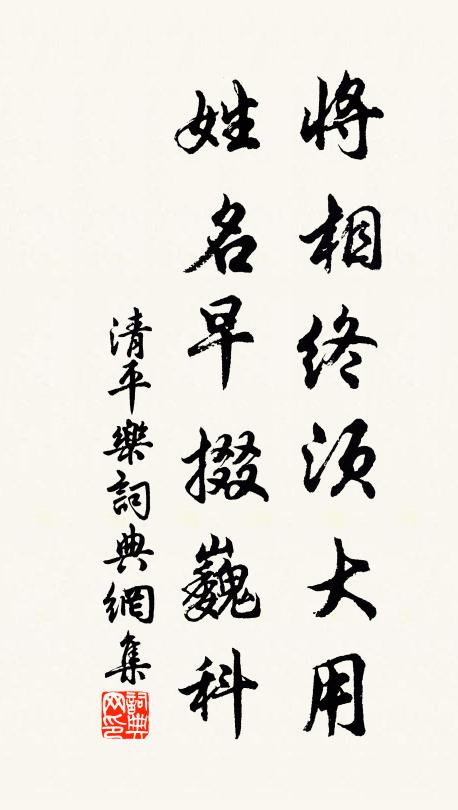 將相終須大用
姓名早掇巍科
清平樂詞典網集
詞典網印